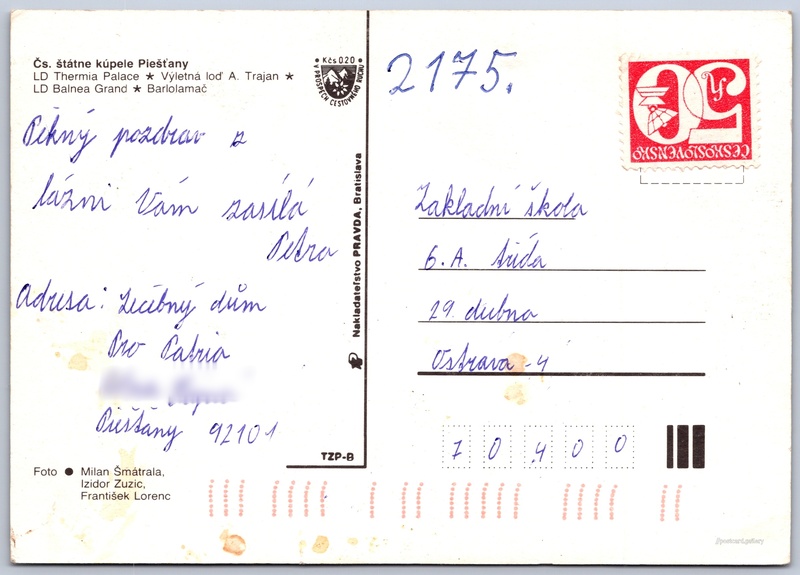 Čs. štátne kúpele Piešťany
LD Thermia Palace ★ Výletná loď A. Trajan ★
LD Balnea Grand ★ Barlolamač
Kčs 020
V PROSPECH CESTOVNÉHO RUCHU
2175.
50 h
ČESKOSLOVENSKO
Pěkný pozdrav z
lázní Vám zasílá
Petra
Adresa: Lečebný dům
Pro Patria
Piešťany 92101
Nakladateľstvo PRAVDA, Bratislava
TZP-B
Foto ● Milan Šmátrala,
Izidor Zuzic,
František Lorenc
Zakladní škola
6. A. třída
29. dubna
Ostrava - 4
70400